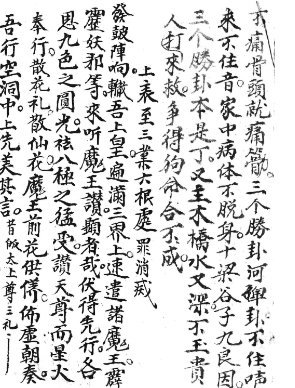 不痛骨頭就痛筋。三个勝卦河卦不住啼
来不住音家中病体不脱身十梁谷子九艮因
三个勝卦本是丁又主木橋水又深不主貴
人打来救争得狗命合不成
上表至三業六根處 罪消滅
發鼓陣响吾上皇遍滿三界上速遣諸魔王霹
靂妖邪等来听魔王讚者哉伏得先行各
恩九色之圓光祛八極之猛受讚天尊而星火
奉行。散花礼散仙花魔王前花供佈虚朝奏
吾行空洞中上先美其言。昔皈太上尊三礼